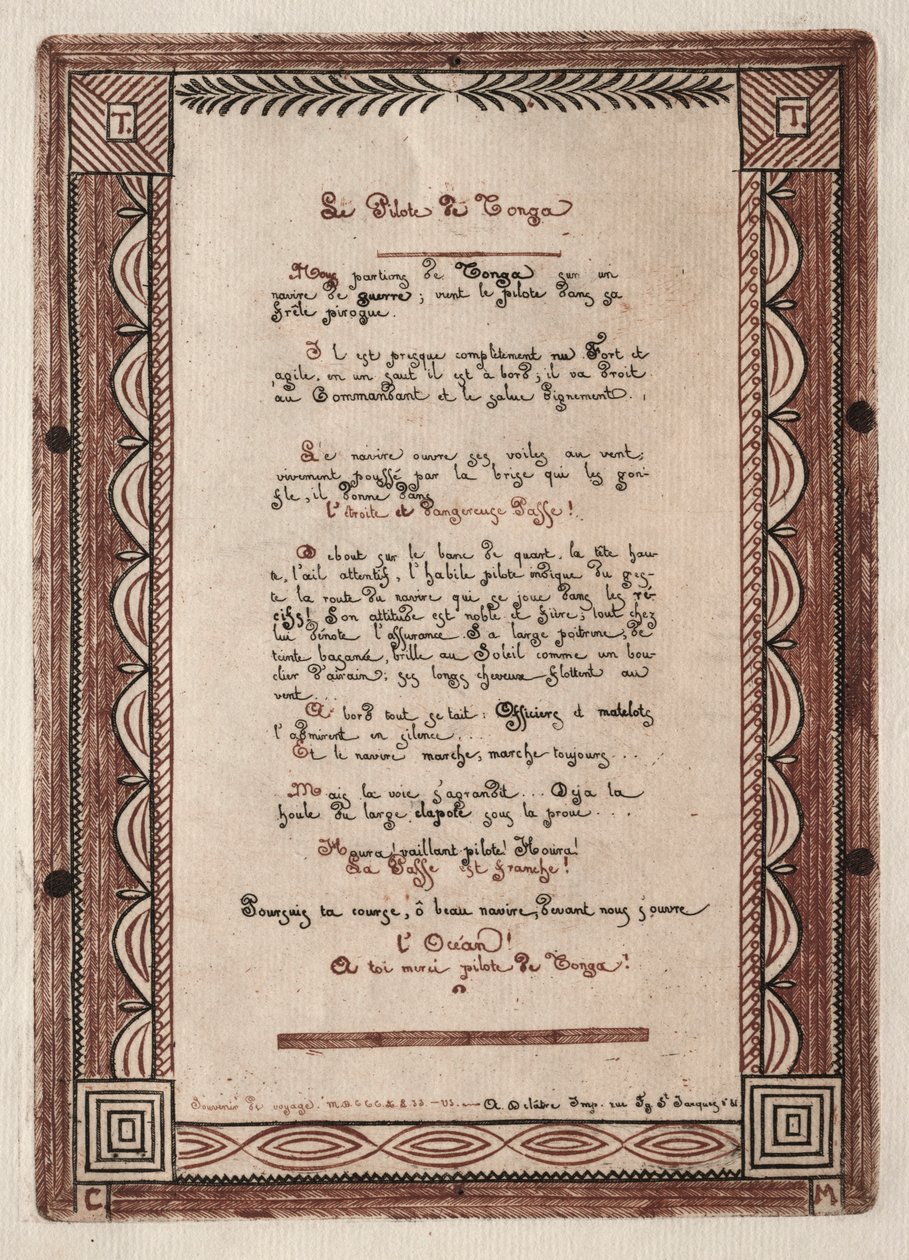 T. T.
Le Pilote de Tonga
Nous partions de Tonga sur un
navire de guerre ; vient le pilote dans sa
frêle pirogue.
Il est presque complètement nu Fort et
agile, en un saut il est à bord ; il va droit
au Commandant et le salue dignement.
Le navire ouvre ses voiles au vent ;
vivement poussé par la brise qui les gon-
fle, il donne dans
l'étroite et dangereuse Passe !
Debout sur le banc de quart, la tête hau-
te, l'œil attentif, l'habile pilote indique du ges-
te la route du navire qui se joue dans les ré-
cifs! Son attitude est noble et fière ; tout chez
lui dénote l'assurance. Sa large poitrine, de
teinte basanée, brille au Soleil comme un bou-
clier d'airain ; ses longs cheveux flottent au
vent ...
A bord tout se tait : Officiers et matelots
l'admirent en silence ...
Et le navire marche, marche toujours ...
Mais la voie s'agrandit ... Déja la
houle du large clapote sous la proue ...
Houra ! vaillant pilote ! Houra!
La Passe est franche !
Poursuis ta course, ô beau navire, devant nous s'ouvre
l'Océan !
A toi merci pilote de Tonga !
Souvenir de voyage. A. Delâtre Imp. rue Fg St Jacques
C. M